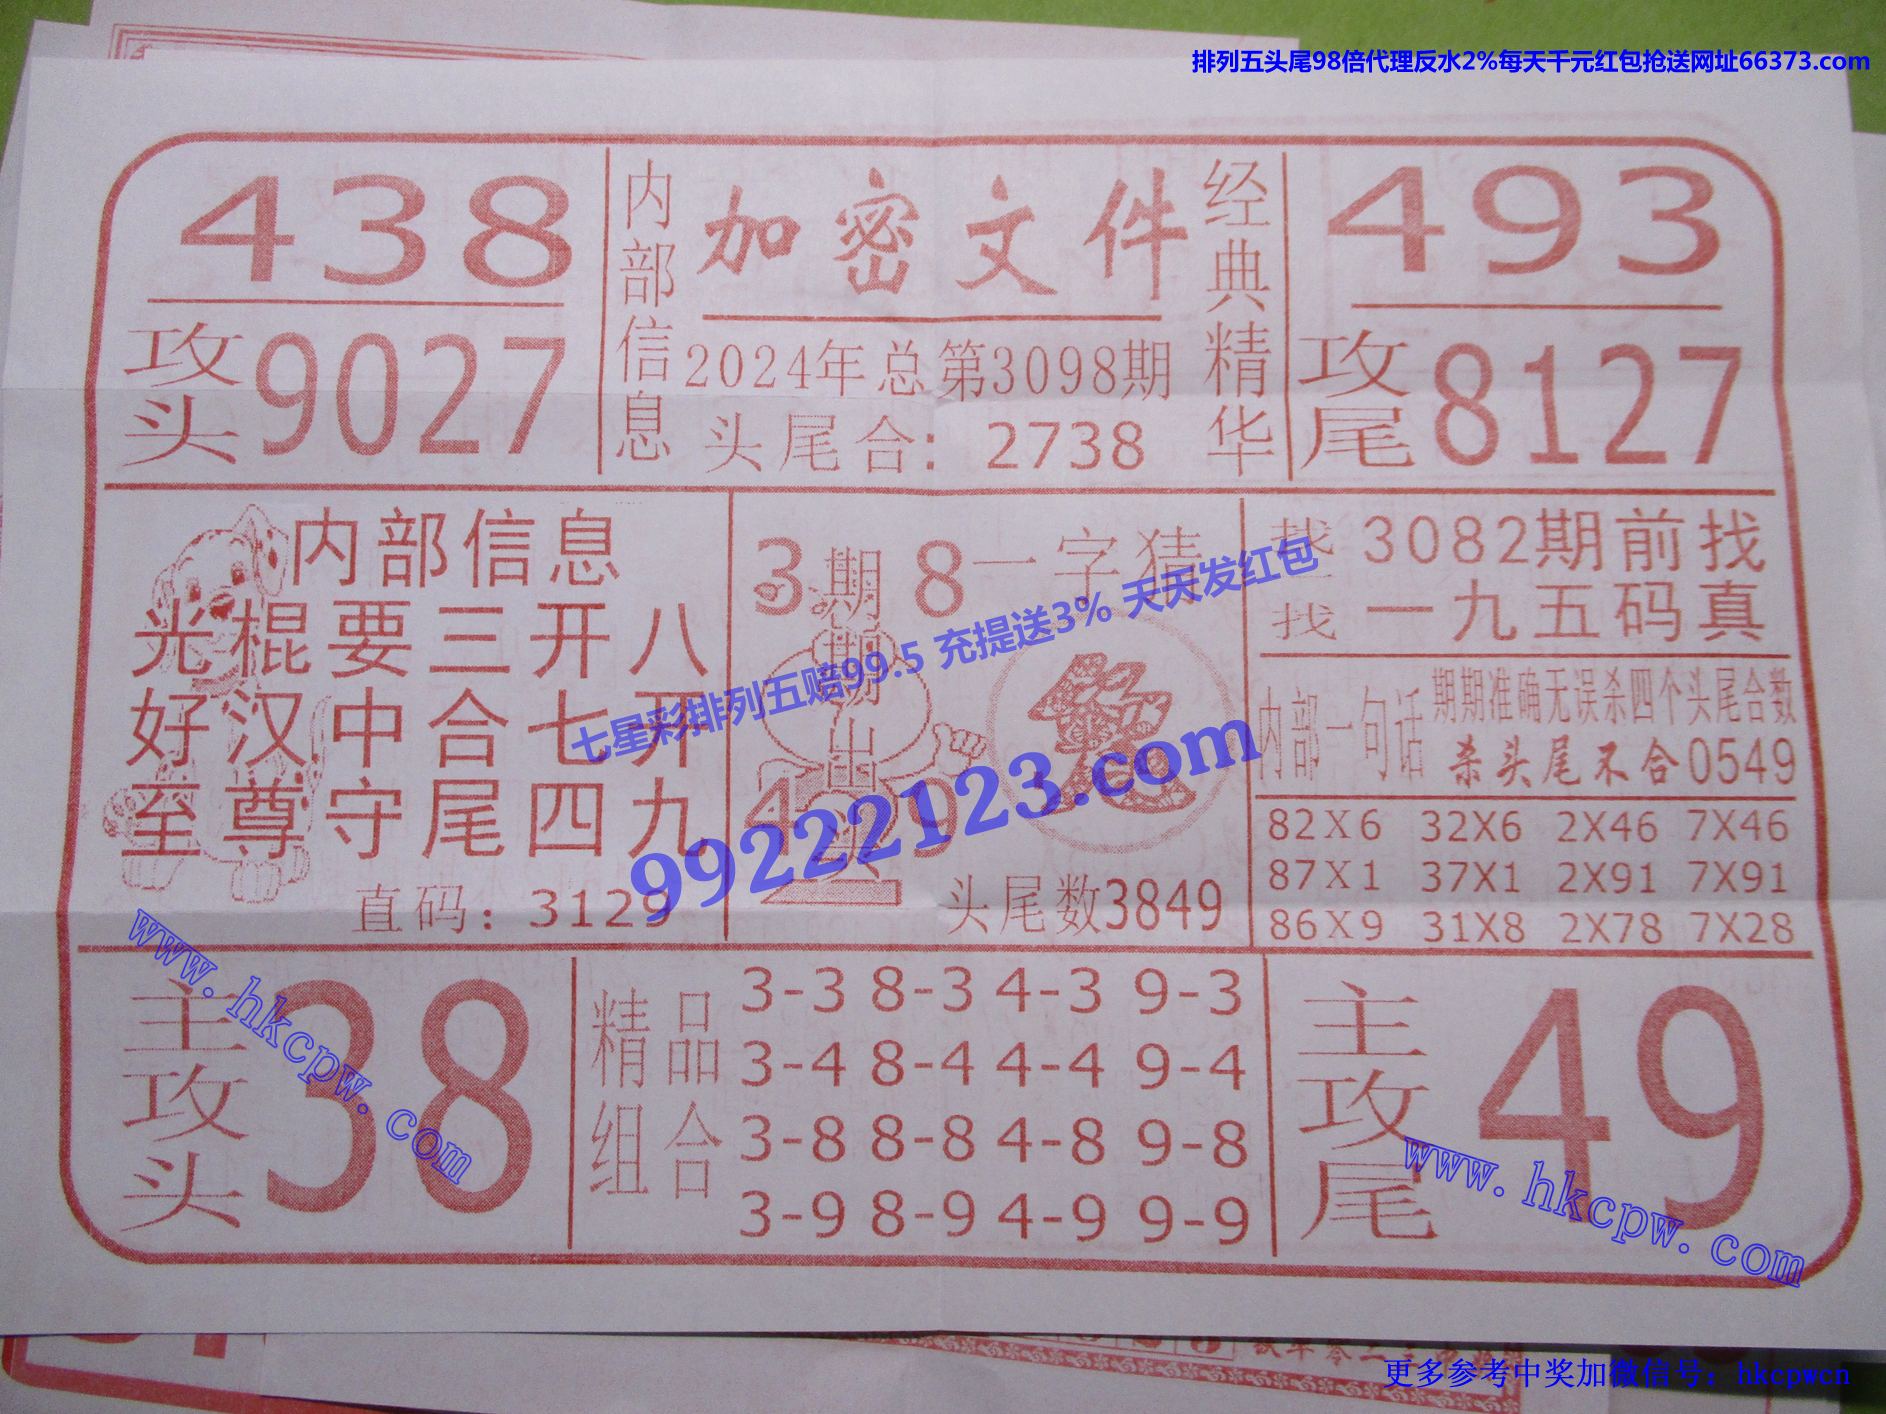 排列五头尾98倍代理反水2%每天千元红包抢送网址66373.com
438
攻头 9027
内部信息
加密文件
2024年总第3098期
头尾合：2738
经典精华
493
攻尾 8127
内部信息
光棍要三开八
好汉中合七开
至尊守尾四九
直码：3129
3期8一字猜
期期出
头尾数3849
找
3082期前找
一九五码真
内部一句话
期期准确无误杀四个头尾合数
杀头尾不合0549
82X6 32X6 2X46 7X46
87X1 37X1 2X91 7X91
86X9 31X8 2X78 7X28
七星彩排列五赔99.5 充提送3% 天天发红包
99222123.com
主攻头 38
精品组合
3-3 8-3 4-3 9-3
3-4 8-4 4-4 9-4
3-8 8-8 4-8 9-8
3-9 8-9 4-9 9-9
主攻尾 49
www.hkcpw.com
www.hkcpw.com
更多参考中奖加微信号：hkcpwcn